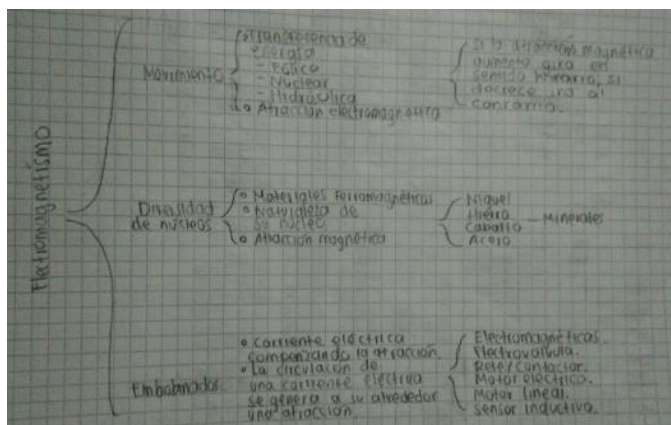 Electromagnetismo
Movimiento
• Transferencia de
energía
- Eólica
- Nuclear
- Hidráulica
• Atracción electromagnética
Si la atracción magnética
aumenta gira en
sentido horario, si
decrece ira al
contrario.
Diversidad
de núcleos
• Materiales Ferromagnéticos
• Naturaleza de
su núcleo
• Atracción magnética
Niquel
Hierro
Cobalto
Acero
Minerales
Embobinados
• Corriente eléctrica
compenzando la atracción.
• La circulación de
una corriente eléctrica
se genera a su alrededor
una atracción.
Electromagnéticas.
Electrovalbula.
Rele/contactor.
Motor eléctrico.
Motor lineal.
Sensor inductivo.